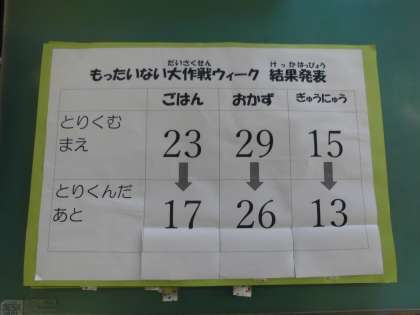 もったいない大作戦ウィーク 結果発表
だいさくせん けっかはっぴょう
ごはん おかず ぎゅうにゅう
とりくむ
まえ
23 29 15
とりくんだ
あと
17 26 13